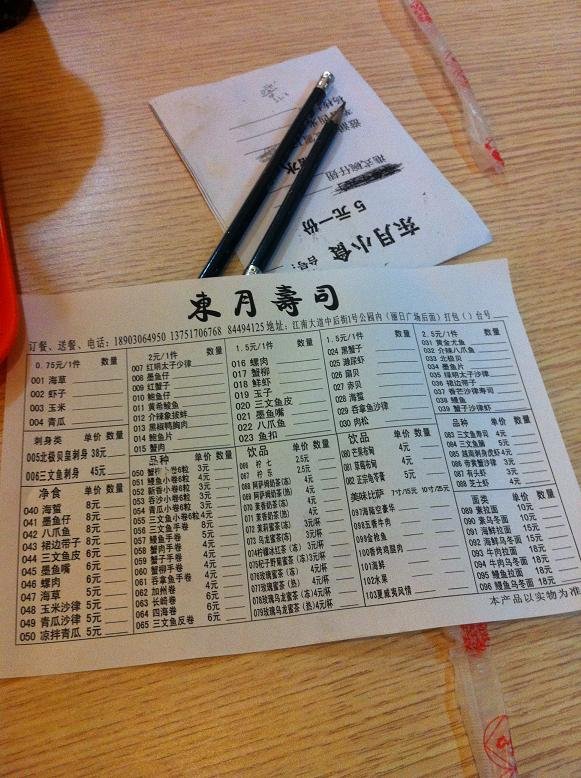 东月小食
5元一份
港式碗仔翅
東月壽司
订餐、送餐、电话：18903064950 13751706768 84494125 地址：江南大道中后街1号公园内（丽日广场后面）打包（ ）台号
0.75元/1件 数量
001 海草
002 虾子
003 玉米
004 青瓜
刺身类 单价 数量
005北极贝皇刺身 38元
006三文鱼刺身 45元
净食 单价 数量
040 海蜇 8元
041 墨鱼仔 8元
042 八爪鱼 8元
043 裙边带子 8元
044 三文鱼皮 6元
045 墨鱼嘴 6元
046 螺肉 6元
047 海草 5元
048 玉米沙律 5元
049 青瓜沙律 5元
050 凉拌青瓜 5元
2元/1件 数量
007 红明太子沙律
008 墨鱼仔
009 红蟹子
010 鲍鱼仔
011 黄希鲮鱼
012 介辣象拔蚌
013 黑椒鸭胸肉
014 鲍鱼片
015 蟹肉
品种 单价 数量
051 鳗鱼小卷6粒 4元
052 新香小卷6粒 3元
053 吞沙小卷6粒 3元
054 青瓜小卷6粒 3元
055 三文鱼小卷6粒 4元
056 三文鱼手卷 5元
057 鳗鱼手卷 5元
058 蟹肉手卷 4元
059 蟹子手卷 4元
060 蟹柳手卷 4元
061 吞拿鱼手卷 4元
062 加州卷 6元
063 长崎卷 6元
064 四海卷 6元
065 三文鱼反卷 6元
1.5元/1件 数量
016 螺肉
017 蟹柳
018 鲜虾
019 玉子
020 三文鱼皮
021 墨鱼嘴
022 八爪鱼
023 鱼扣
饮品 单价 数量
066 柠七 2.5元
067 柠乐 2.5元
068 阿萨姆奶茶(冻) 4元
069 阿萨姆奶茶(热) 4元
070 茉香奶茶(冻) 4元
071 茉香奶茶(热) 4元
072 茉莉蜜茶(冻) 3元/杯
073 乌龙蜜茶(冻) 3元/杯
074柠檬冰红茶(冻) 3元/杯
075松子野菊蜜茶(冻)3元/杯
076玫瑰蜜茶(冻) 4元/杯
077玫瑰蜜茶(热) 4元/杯
078玫瑰乌龙蜜茶(冻)4元/杯
079玫瑰乌龙蜜茶(热)4元/杯
1.5元/1件 数量
024 黑蟹子
025 濑尿虾
026 扇贝
027 赤贝
028 海蜇
029 吞拿鱼沙律
030 肉松
饮品 单价 数量
080 芒果布甸 4元
081 草莓布甸 4元
082 正宗龟苓膏 5元
美味比萨 7寸/15元 10寸/25元
097海陆空豪华
098五香牛肉
099金枪鱼
100香肉鸡腿肉
101海鲜
102水果
103夏威夷风情
2.5元/1件 数量
031 黄金尤鱼
032 介辣八爪鱼
033 北极贝
034 墨鱼片
035 绿明太子沙律
036 裙边带子
037 香芒沙律寿司
038 鳗鱼
039 蟹子沙律虾
品种 单价 数量
083 三文鱼寿司 4元
084 三文鱼腩 5元
085 越南刺身虎虾 4元
086 带黄蟹沙律 3元
087 有头虾 3元
088 芝士虾 4元
面类 单价 数量
089 素拉面 10元
090 素乌冬面 10元
091 海鲜拉面 15元
092 海鲜乌冬面 15元
093 牛肉拉面 18元
094 牛肉乌冬面 18元
095 鳗鱼拉面 18元
096 鳗鱼乌冬面 18元
本产品以实物为准